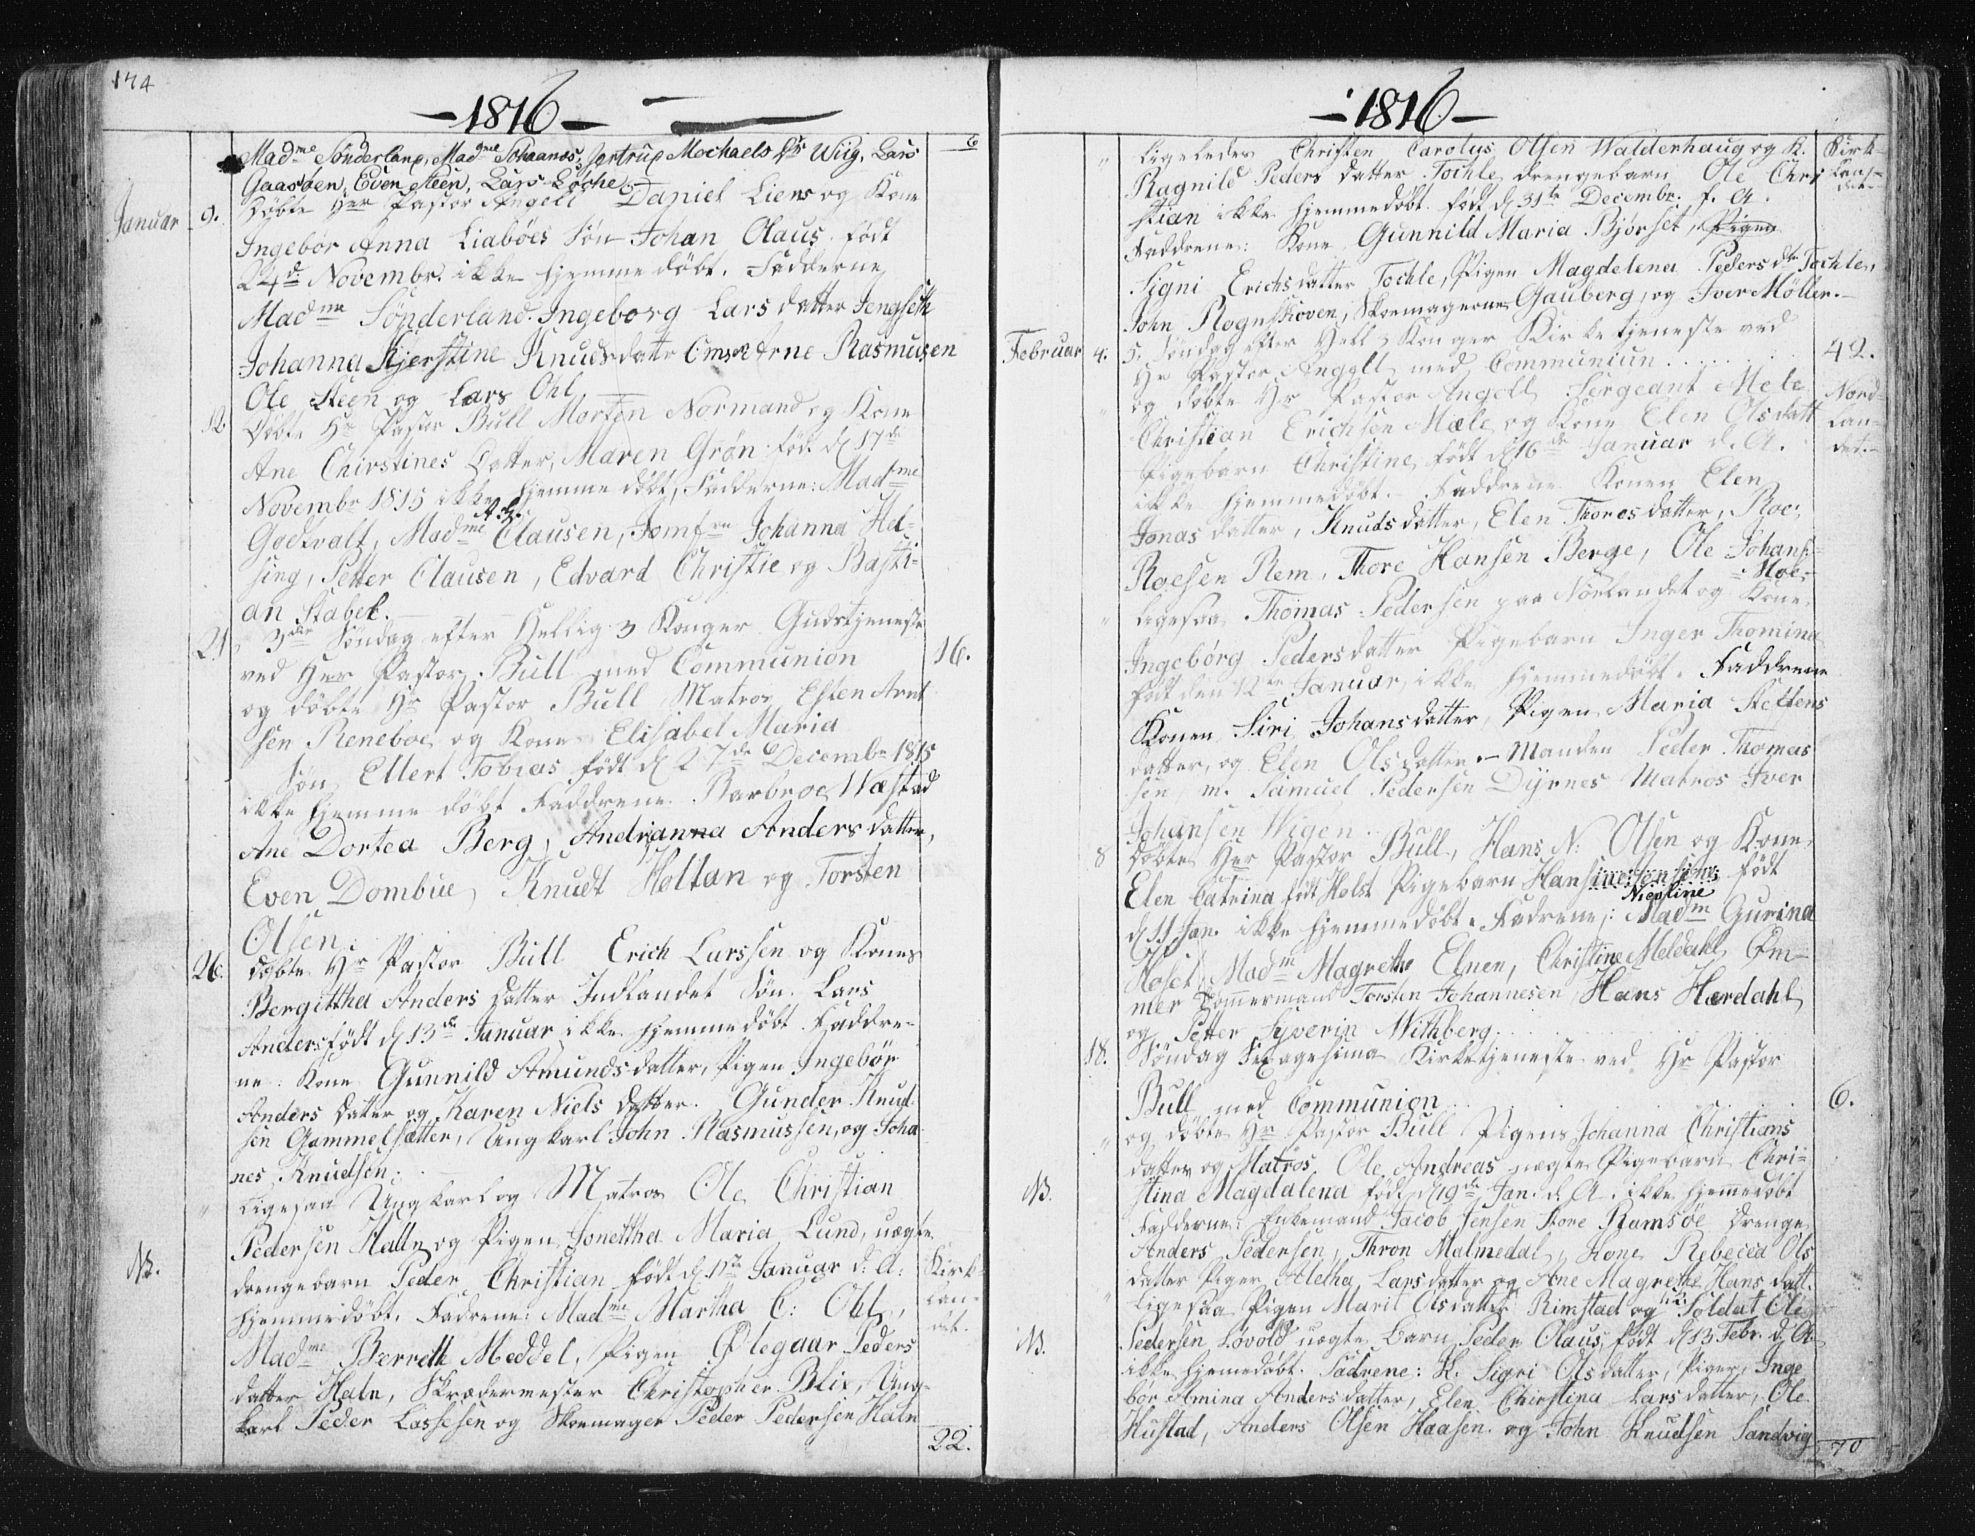 174
-1816-
6
Madme Sønderland, Madme Johannes, Jertrup Mochaels Dtr Wiig, Lars
Gaasøen, Even Steen, Lars Løche.
Januar 9. Døbte Her Pastor Angell Daniel Liens og Kone
Ingebør Anna Liabøes Søn Johan Olaus født
24d Novembr. ikke hjemmedøbt. Fadderne
Madme Sønderland. Ingeborg Larsdatter Jengseth
Johanna Kjerstine Knudsdatr Arne Rasmusen
Ole Steen og Lars Ohl
12 Døbte Hr Pastor Bull Morten Normand og Kone
Ane Chirstines Datter, Maren Grøn fød. d 17de
Novembr 1815 ikke hjemmedøbt, Fadderne: Madme
Godtvalt, Madme Clausen, Jomfru Johanna Hel-
sing, Petter Clausen, Edvard Christie og Basti-
an Stabel.
21 3die Søndag efter Hellig 3 Konger Gudstjeneste
ved Her Pastor Bull med Communion 16.
og døbte Hr Pastor Bull Matros Esten Arnt
sen Reneboe og Kone Elisabet Maria
Søn Ellert Tobias født d 27de Decembr 1815
ikke hjemme døbt Faddrene Barbroe Næstad
Ane Dortea Berg, Andrianna Anders datter,
Even Dombue, Knudt Holtan og Torsten
Olsen.
26. døbte Hr Pastor Bull Erich Larssen og Kones
Bergittha Anders datter Indlandet Søn Lars
Anders født d 13de Januar ikke hjemmedøbt Faddre-
ne: Kone Gunnild Amundsdatter, Pigen Ingebør
Anders datter og Karen Niels datter. Gunder Knud
sen Gammelsætter, Ungkarl John Rasmussen, og Joha
nes Knudsen.
" Ligesaa Ungkarl og Matros Ole Christian
Pedersen Halln og Pigen Jonettha Maria Lund, uægte
NB. drengebarn Peder Christian født d 1ste Januar d. A. Kirk-
hjemmedøbt. Fadrene: Madme Martha C: Ohl, lan-
Madme Berreth Meddel, Pigen Olegaar Peders det.
datter Haln, Skrædermester Christopher Blix, Ung-
karl Peder Lassesen og Skoemager Peder Pedersen Haln
22.
-1816-
" ligeledes Christen Carolus Olsen Walderhaug og K. Kirk-
Ragnild Peders datter Tochle drengebarn Ole Chri Lan-
stian ikke hjemmedøbt født d 31te Decembr. f. A. det-
Faddrene: Kone Gunnild Maria Bjørset, Pigen
Signi Erichsdatter Tochle, Pigen Magdelena Pedersdtr Tochle,
John Rognskoven, Skoemagerne Gauberg, og Iver Møller.
Februar 4. 5. Søndag efter Hell. 3 Konger Kirketjeneste ved
Hr Pastor Angell med Communiun 42.
" og døbte Hr Pastor Angell Sergeant Mele Nord-
Christian Erichsen Mæle og Kone Elen Olsdatt lan-
Pigebarn Christine født d 16de Januar d. A. det.-
ikke hjemmedøbt. Faddrene Konen Elen
Jonas datter, Knuds datter, Elen Thores datter, Roe
Roesen Rem, Thore Hansen Berge, Ole Johans-
Moe
" ligesaa Thomas Pedersen paa Norlandet og Kone
Ingebørg Pedersdatter Pigebarn Inger Thomina
født den 12te Januar, ikke hjemmedøbt. Faddrene
Konen Siri Johansdatter, Pigen Maria Steffens
datter, og Elen Olsdatter. - Manden Peder Thomas
sen m. Samuel Pedersen Dyrnes Matros Iver
Johansen Wigen.
8 Døbte Her Pastor Bull, Hans N: Olsen og Kone
Elen Catrina født Holst Pigebarn Hansine født
Nicoline
d 11 Jan. ikke hjemmedøbt. Fadrene: Madm Gurina
Hoset, Madm Magrethe Elnen, Christine Meldahl, Tøm-
mer Tømmermand Torsten Johannesen, Hans Hærdahl
og Petter Syverin Withberg.
18. Søndag Sexagesima Kirketjeneste ved Hr Pastor
Bull med Communion 6.
" og døbte Hr Pastor Bull Pigens Johanna Christians
datter og Matros Ole Andreas uægte Pigebarn Chri-
NB. stina Magdalena født d 19de Jan. d. A. ikke hjemmedøbt
Fadderne: Enkemand Jacob Jensen Store Ramsøe Drenge
Anders Pedersen, Thron Malmedal, Kone Rebecca Ols
datter Piger Aletha Larsdatter og Ane Magrethe Hans datt.
" ligesaa Pigen Marit Olsdatter Rimstad og Soldat Ole
NB. Pedersen Løvold uægte Barn Peder Olaus, født d 13 Febr. d. A.
ikke hjemedøbt. Fadrene: K. Sigri Olsdatter, Piger, Inge
bor Amina Andersdatter, Elen Chirstina Larsdatter, Ole
Hustad, Anders Olsen Haasen og John Knudsen Sandvig
70